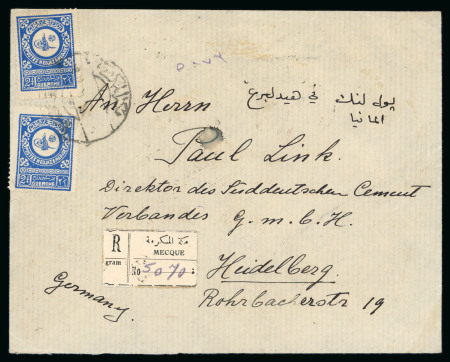 An Herrn
Paul Link.
Direktor des Süddeutschen Cement
Verbandes G. m. b. H.
Heidelberg.
Rohrbacherstr 19
Germany.
في هيدلبرغ
المانيا
R
مكة المكرمة
MECQUE
gram
No 5070
2½ GUERCHE
2½ GUERCHE